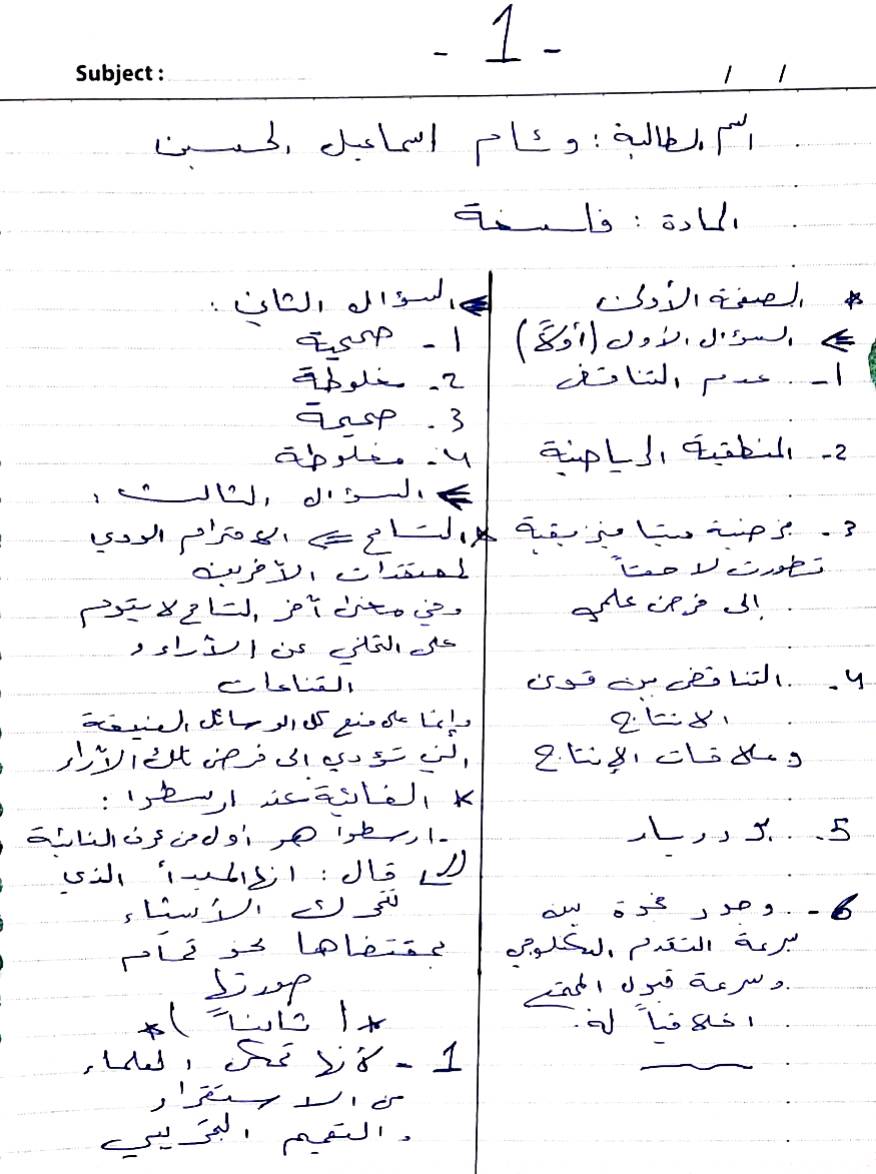 - 1 -
Subject :
/ /
اسم الطالبة : وئام اسماعيل الحسين
المادة : فلسفة
* الصفحة الأولى
السؤال الأول (أولاً)
1- عدم التناقض
2- المنطقية الرياضية
3. فرضية ميتا فيزيقية
تطورت لاحقاً
إلى فرض علمي
4. التناقض بين قوى
الانتاج
وعلاقات الإنتاج
5. بودريار
6- وجود فجوة بين
سرعة التقدم التكنلوجي
وسرعة قبول المجتمع
اخلاقياً له.
السؤال الثاني :
1- صحيحة
2. مغلوطة
3. صحيحة
4. مغلوطة
السؤال الثالث :
* التسامح ⇐ الاحترام الودي
لمعتقدات الآخرين
وفي معنى آخر التسامح لا يقوم
على التخلي عن الآراء و
القناعات
وإنما على منع كل الوسائل العنيفة
التي تؤدي الى فرض تلك الآراء
* الغائية عند ارسطوا :
- ارسطوا هو أول من عرف الغائية
قال : انها المبدأ الذي
تتحرك الأشياء
بمقتضاها نحو تمام
صورتها
* (ثانياً) *
1 - لأنها تمكن العلماء
من الاستقراء
والتعميم التجريبي